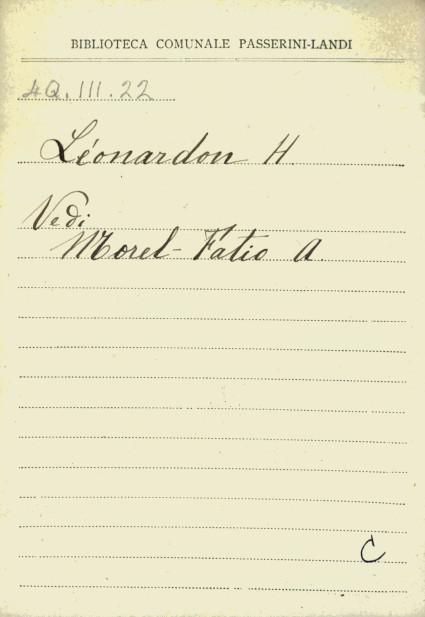 BIBLIOTECA COMUNALE PASSERINI-LANDI
4Q.III.22
Léonardon H.
Vedi
Morel-Fatio A.
C